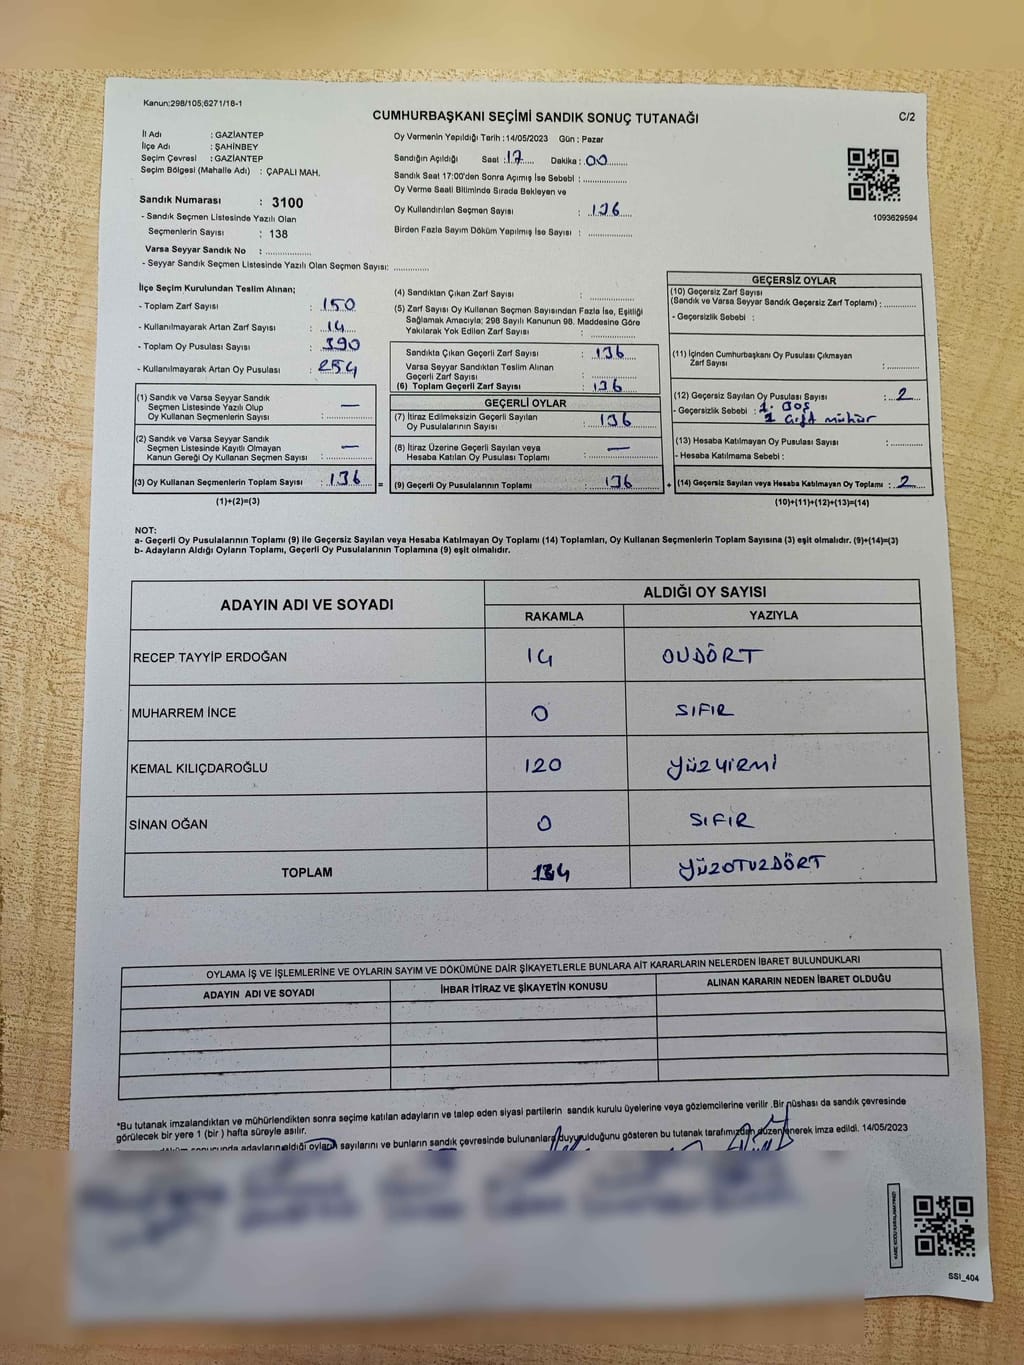 Kanun:298/105;6271/18-1
CUMHURBAŞKANI SEÇİMİ SANDIK SONUÇ TUTANAĞI
C/2
İl Adı : GAZİANTEP
İlçe Adı : ŞAHİNBEY
Seçim Çevresi : GAZİANTEP
Seçim Bölgesi (Mahalle Adı) : ÇAPALI MAH.
Sandık Numarası : 3100
- Sandık Seçmen Listesinde Yazılı Olan
Seçmenlerin Sayısı : 138
Varsa Seyyar Sandık No : ..............
- Seyyar Sandık Seçmen Listesinde Yazılı Olan Seçmen Sayısı: ............
Oy Vermenin Yapıldığı Tarih :14/05/2023 Gün : Pazar
Sandığın Açıldığı Saat : 17 Dakika : 00
Sandık Saat 17:00'den Sonra Açımış İse Sebebi : ..............
Oy Verme Saati Bitiminde Sırada Bekleyen ve
Oy Kullandırılan Seçmen Sayısı : 136
Birden Fazla Sayım Döküm Yapılmış İse Sayısı : ..............
1093629594
İlçe Seçim Kurulundan Teslim Alınan;
- Toplam Zarf Sayısı : 150
- Kullanılmayarak Artan Zarf Sayısı : 14
- Toplam Oy Pusulası Sayısı : 390
- Kullanılmayarak Artan Oy Pusulası : 254
(1) Sandık ve Varsa Seyyar Sandık
Seçmen Listesinde Yazılı Olup
Oy Kullanan Seçmenlerin Sayısı : —
(2) Sandık ve Varsa Seyyar Sandık
Seçmen Listesinde Kayıtlı Olmayan
Kanun Gereği Oy Kullanan Seçmen Sayısı : —
(3) Oy Kullanan Seçmenlerin Toplam Sayısı : 136 =
(1)+(2)=(3)
(4) Sandıktan Çıkan Zarf Sayısı : ..............
(5) Zarf Sayısı Oy Kullanan Seçmen Sayısından Fazla İse, Eşitliği
Sağlamak Amacıyla; 298 Sayılı Kanunun 98. Maddesine Göre
Yakılarak Yok Edilen Zarf Sayısı : ..............
Sandıkta Çıkan Geçerli Zarf Sayısı : 136
Varsa Seyyar Sandıktan Teslim Alınan
Geçerli Zarf Sayısı : ..............
(6) Toplam Geçerli Zarf Sayısı : 136
GEÇERLİ OYLAR
(7) İtiraz Edilmeksizin Geçerli Sayılan
Oy Pusulalarının Sayısı : 136
(8) İtiraz Üzerine Geçerli Sayılan veya
Hesaba Katılan Oy Pusulası Toplamı : —
(9) Geçerli Oy Pusulalarının Toplamı : 136 +
GEÇERSİZ OYLAR
(10) Geçersiz Zarf Sayısı
(Sandık ve Varsa Seyyar Sandık Geçersiz Zarf Toplamı) : ............
- Geçersizlik Sebebi :
(11) İçinden Cumhurbaşkanı Oy Pusulası Çıkmayan
Zarf Sayısı : ............
(12) Geçersiz Sayılan Oy Pusulası Sayısı : 2
- Geçersizlik Sebebi : 1. Boş
1 Çift mühür
(13) Hesaba Katılmayan Oy Pusulası Sayısı : ............
- Hesaba Katılmama Sebebi :
(14) Geçersiz Sayılan veya Hesaba Katılmayan Oy Toplamı : 2
(10)+(11)+(12)+(13)=(14)
NOT:
a- Geçerli Oy Pusulalarının Toplamı (9) ile Geçersiz Sayılan veya Hesaba Katılmayan Oy Toplamı (14) Toplamları, Oy Kullanan Seçmenlerin Toplam Sayısına (3) eşit olmalıdır. (9)+(14)=(3)
b- Adayların Aldığı Oyların Toplamı, Geçerli Oy Pusulalarının Toplamına (9) eşit olmalıdır.
ADAYIN ADI VE SOYADI
ALDIĞI OY SAYISI
RAKAMLA YAZIYLA
RECEP TAYYİP ERDOĞAN 14 ONDÖRT
MUHARREM İNCE 0 SIFIR
KEMAL KILIÇDAROĞLU 120 YÜZYİRMİ
SİNAN OĞAN 0 SIFIR
TOPLAM 134 YÜZOTUZDÖRT
OYLAMA İŞ VE İŞLEMLERİNE VE OYLARIN SAYIM VE DÖKÜMÜNE DAİR ŞİKAYETLERLE BUNLARA AİT KARARLARIN NELERDEN İBARET BULUNDUKLARI
ADAYIN ADI VE SOYADI İHBAR İTİRAZ VE ŞİKAYETİN KONUSU ALINAN KARARIN NEDEN İBARET OLDUĞU
*Bu tutanak imzalandıktan ve mühürlendikten sonra seçime katılan adayların ve talep eden siyasi partilerin sandık kurulu üyelerine veya gözlemcilerine verilir .Bir nüshası da sandık çevresinde
görülecek bir yere 1 (bir ) hafta süreyle asılır.
sonucunda adayların aldığı oyların sayılarını ve bunların sandık çevresinde bulunanlara duyurulduğunu gösteren bu tutanak tarafımızdan düzenlenerek imza edildi. 14/05/2023
SSI_404